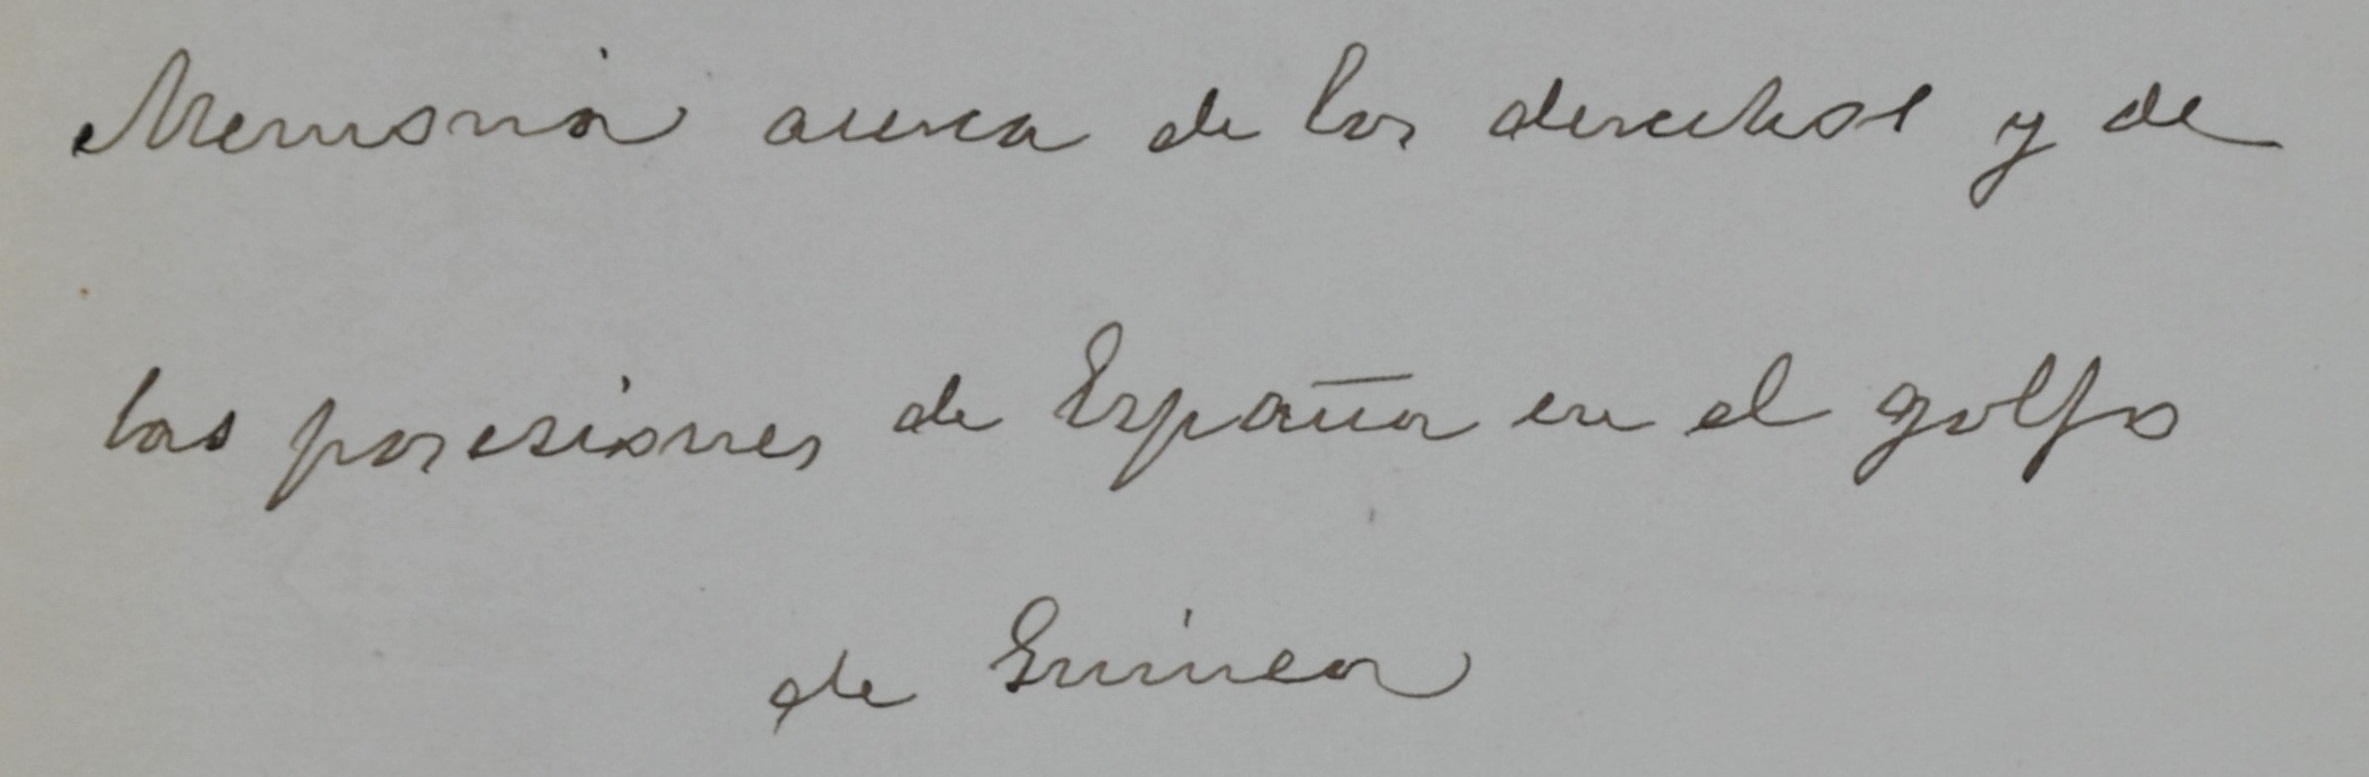 Memoria acerca de los derechos y de
las posesiones de España en el golfo
de Guinea